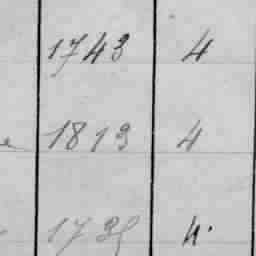 1743 4
1813 4
4.